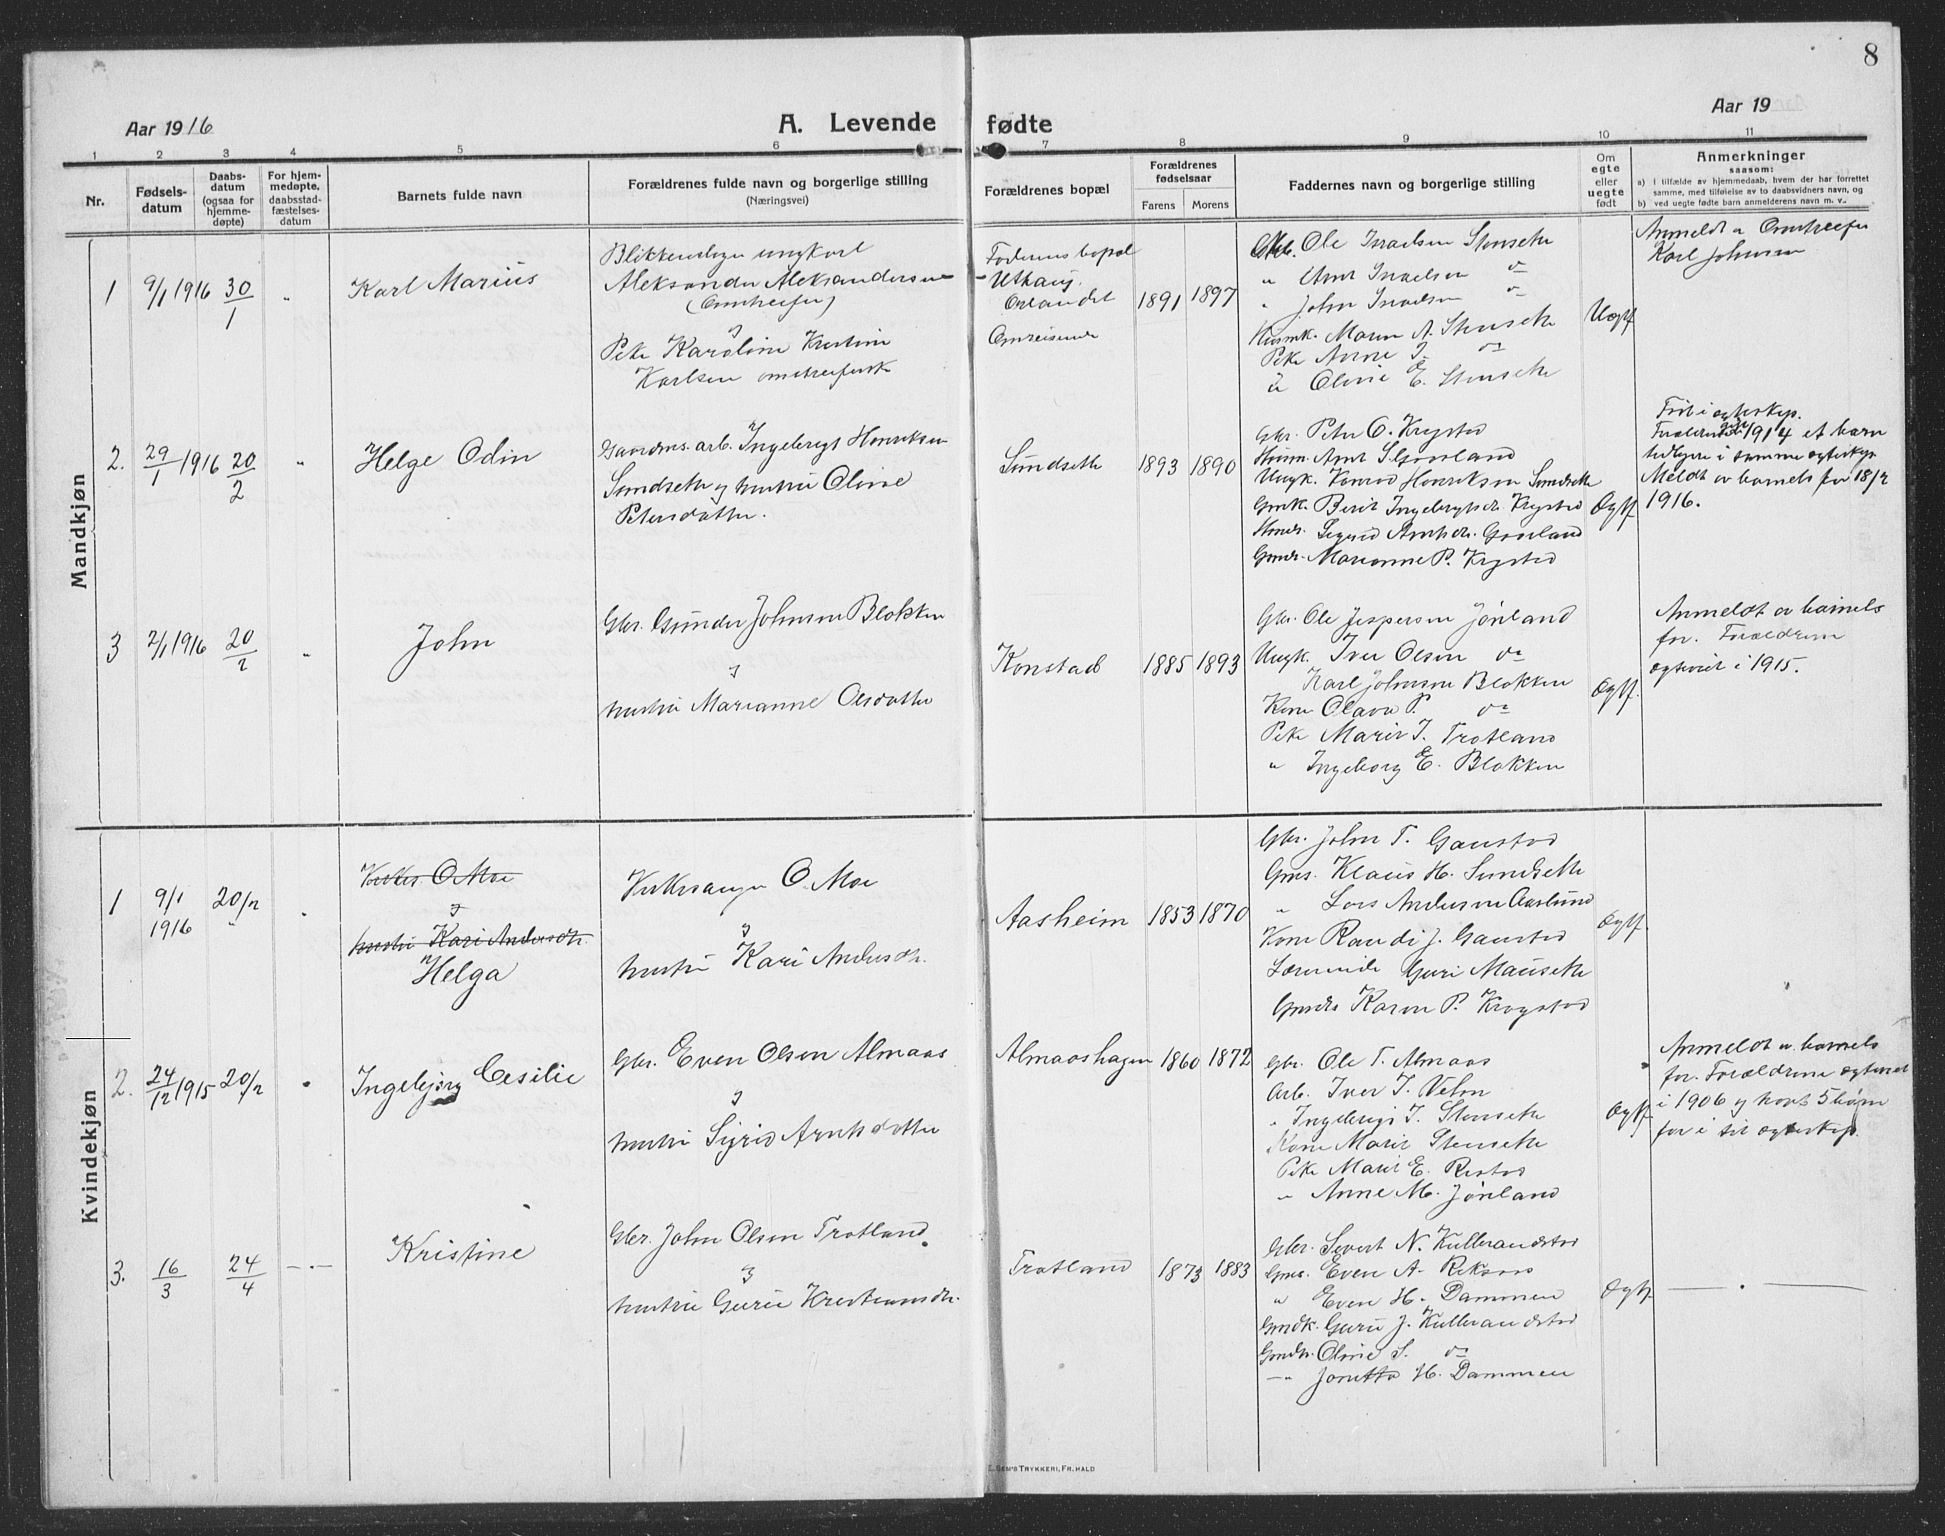 8
Aar 1916
A. Levende fødte
Aar 19
1 2 3 4 5 6 7 8 9 10 11
Nr.
Fødsels-
datum
Daabs-
datum
(ogsaa for
hjemme-
døpte)
For hjem-
medøpte,
daabsstad-
fæstelses-
datum
Barnets fulde navn
Forældrenes fulde navn og borgerlige stilling
(Næringsvei)
Forældrenes bopæl
Forældrenes
fødselsaar
Farens Morens
Faddernes navn og borgerlige stilling
Om
egte
eller
uegte
født
Anmerkninger
saasom:
a) I tilfælde av hjemmedaab, hvem der har forrettet
samme, med tilføielse av to daabsvidners navn, og
b) ved uegte fødte barn anmelderens navn m. v..
Mandkjøn
1 9/1 1916 30/1 "
Karl Marius
Aleksander Aleksandersen
Pike Karoline Kristine
Karlsen
Uthaug
Ørlandet
Omreisende
1891 1897
Gbr. Ole Israelsen Stensete
" Arnt Israelsen do
" John Israelsen do
Husmk. Maren A. Stensete
Pike Anne I. do
do Oline E. Stensete
Uegtf.
Karl Johnsen
2. 29/1 1916 20/2 "
Helge Odin
Gaardms. arb. Ingebrigt Henriksen
Sundsete og hustru Oline
Petersdatter.
Sundsete
1893 1890
Gbr. Peter O. Krogstad
Ungk. Konrad Henriksen Sundsete
Gmk. Berit Ingebrigtsdr. Krogstad
Gmdr. Marianne P. Krogstad
Egtf.
Meldt av barnets far 18/2
1916.
3 2/1 1916 20/2 "
John
Gbr. Gunder Johnsen Blokken
&
hustru Marianne Olsdatter
Konstad
1885 1893
Gbr. Ole Jespersen Jønland
Ungk. Iver Olsen do
Karl Johnsen Blokken
Kone Olava P. do
Pike Marit I. Trotland
" Ingeborg E. Blokken
Egtf.
Anmeldt av barnets
far. Forældrene
egteviet i 1915.
Kvindekjøn
1 9/1 1916 20/2 "
Kirkes. O. Moe
&
hustru Kari Andersdtr.
Helga
Kirkesanger O. Moe
&
hustru Kari Andersdtr.
Aasheim
1853 1870
Gbr. John T. Gaustad
Gms. Klaus H. Sundsete
" Lars Andersen Aaslund
Kone Randi J. Gaustad
Lærerinde Guri Mausete
Gmdtr Karen P. Krogstad
Egtf.
2. 24/12 1915 20/2
Ingebjørg Cesilie
Gbr. Even Olsen Almaas
&
hustru Sigrid Arntsdatter
Almaashagen
1860 1872
Gbr. Ole T. Almaas
Arb. Iver I. Velen
" Ingebrigt I. Stensete
Kone Marit Stensete
Pike Marit E. Rostad
" Anne M. Jønland
Egtf.
Anmeldt av barnets
far. Forældrene egteviet
i 1906 og havt 5 børn
før i sit egteskap.
3. 16/3 24/4
Kristine
Gbr. John Olsen Trotland
&
hustru Gurie Kristiansdtr.
Trotland
1873 1883
Gbr. Sivert N. Kulbrandstad
Gms. Even A. Reksaas
" Even H. Dammen
Gmdk. Guru J. Kulbrandstad
Gmdtr. Oline S. do
" Jonetta H. Dammen
Egtf.
E. SEM'S TRYKKERI, FR. HALD